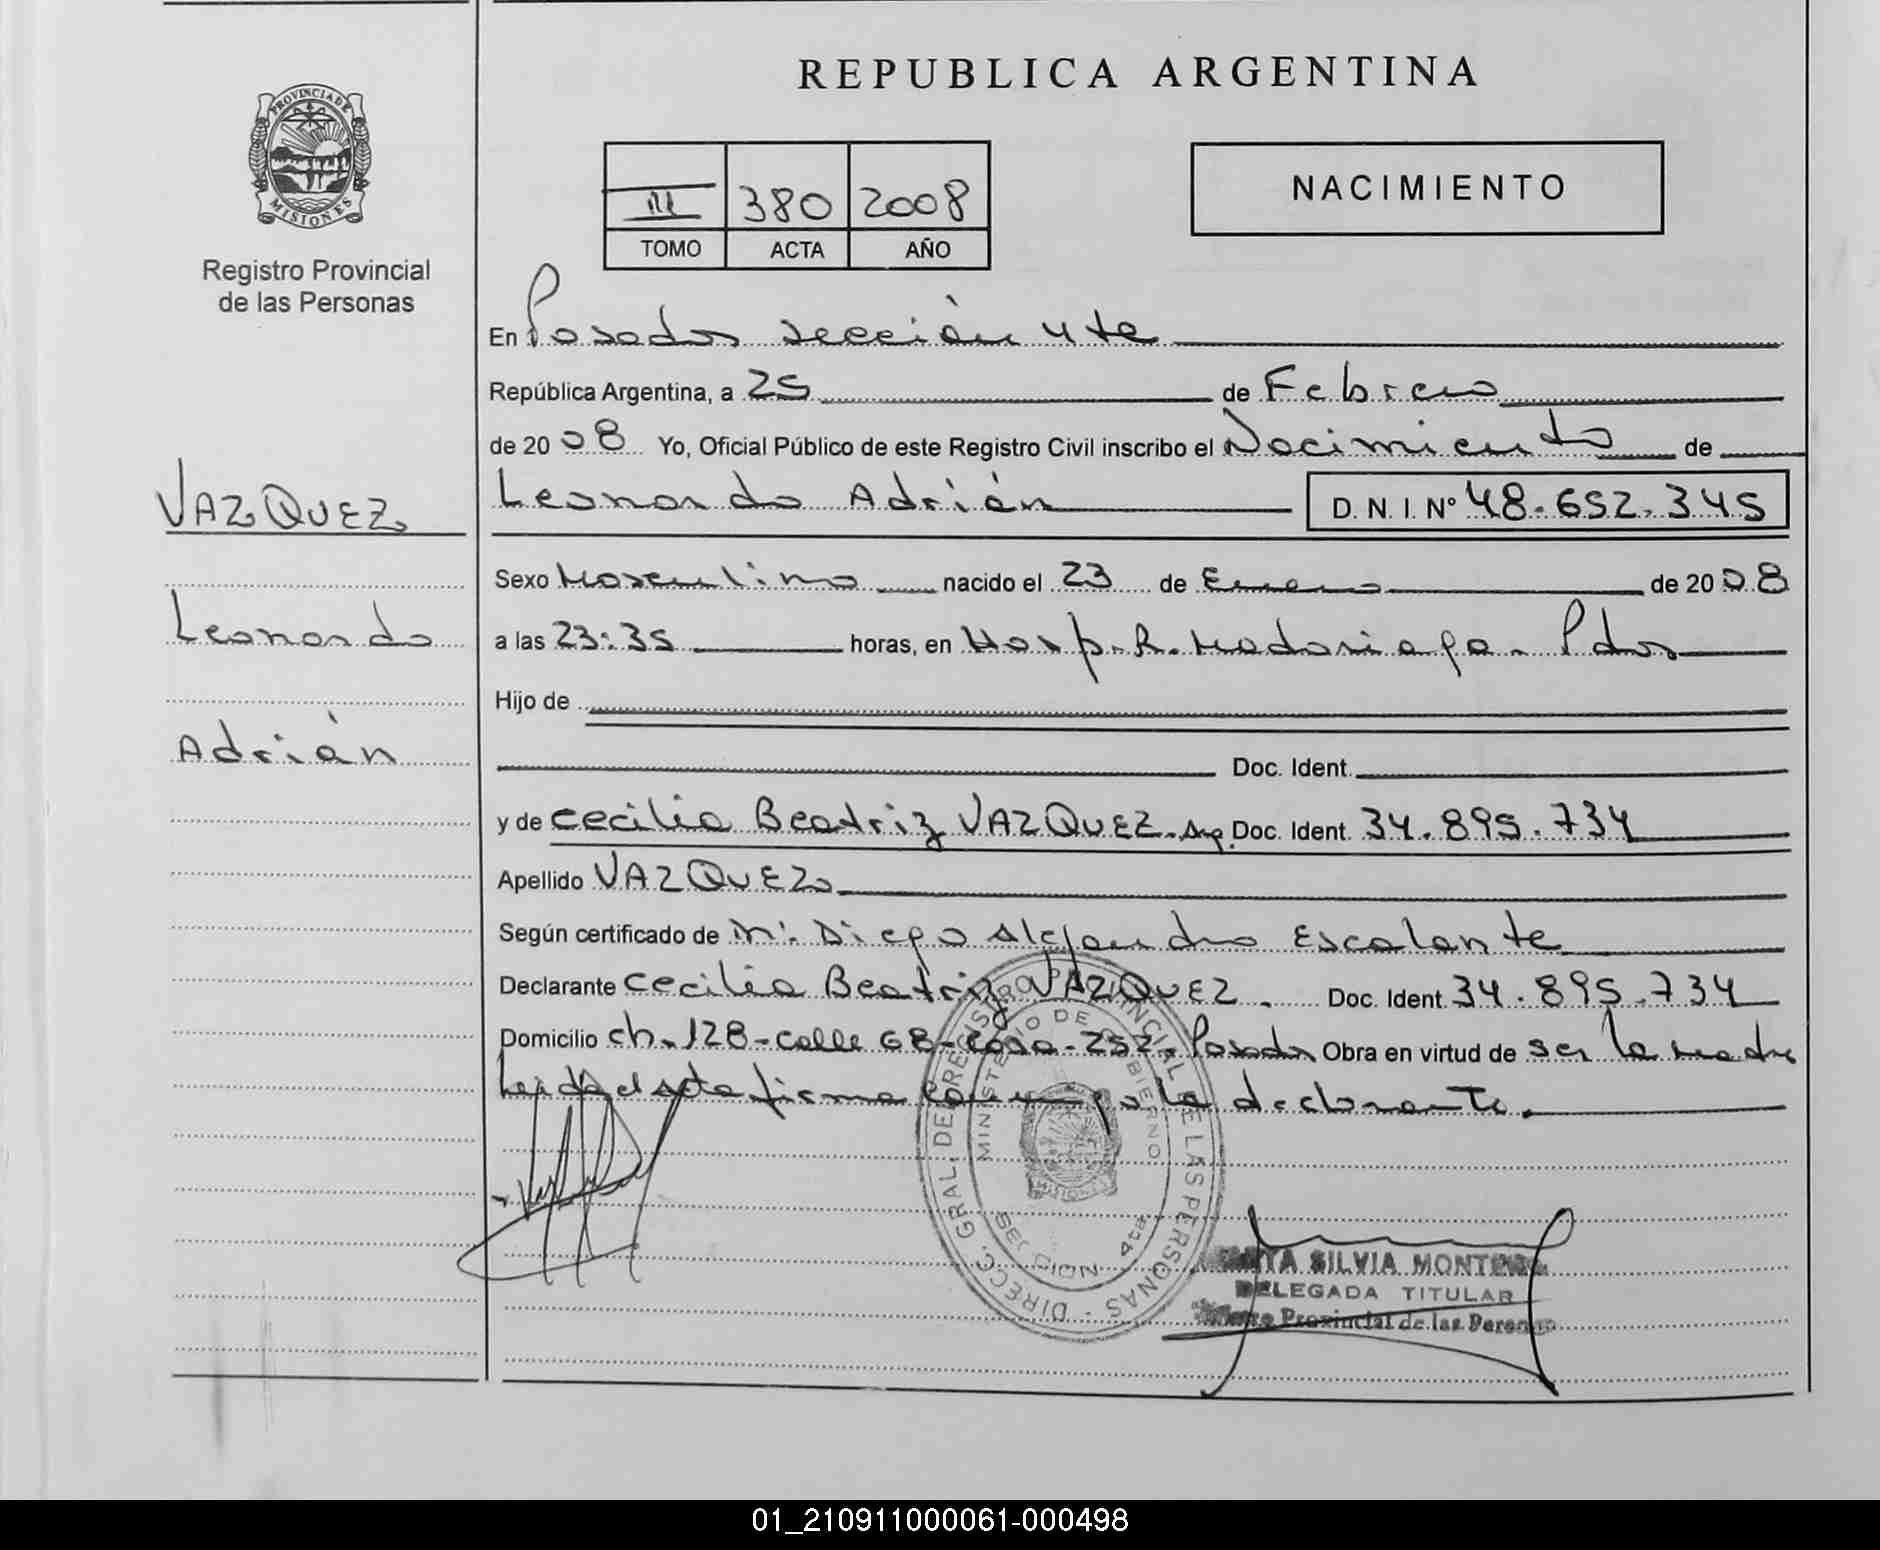 REPUBLICA ARGENTINA
PROVINCIA DE
MISIONES
Registro Provincial
de las Personas
III 380 2008
TOMO ACTA AÑO
NACIMIENTO
En Posadas sección 4ta
República Argentina, a 25 de Febrero
de 2008 Yo, Oficial Público de este Registro Civil inscribo el Nacimiento de
VAZQUEZ
Leonardo Adrián D. N. I. Nº 48.652.345
Sexo Masculino nacido el 23 de Enero de 2008
Leonardo
a las 23:35 horas, en Hosp. R. Madariaga - Pdas
Hijo de
Adrián
Doc. Ident.
y de Cecilia Beatriz VAZQUEZ - Arg. Doc. Ident. 34.895.734
Apellido VAZQUEZ
Según certificado de Diego Alejandro Escalante
Declarante Cecilia Beatriz VAZQUEZ. Doc. Ident. 34.895.734
Domicilio ch. 128 - calle 68 - casa - 252. Posadas Obra en virtud de ser la madre
Leida el acta firma conmigo la declarante.
DIRECC. GRAL. DE REGISTRO PROVINCIAL DE LAS PERSONAS -
MINISTERIO DE GOBIERNO
MISIONES
SECCION 4ta
SILVIA
DELEGADA TITULAR
Provincial de las Personas
01_210911000061-000498